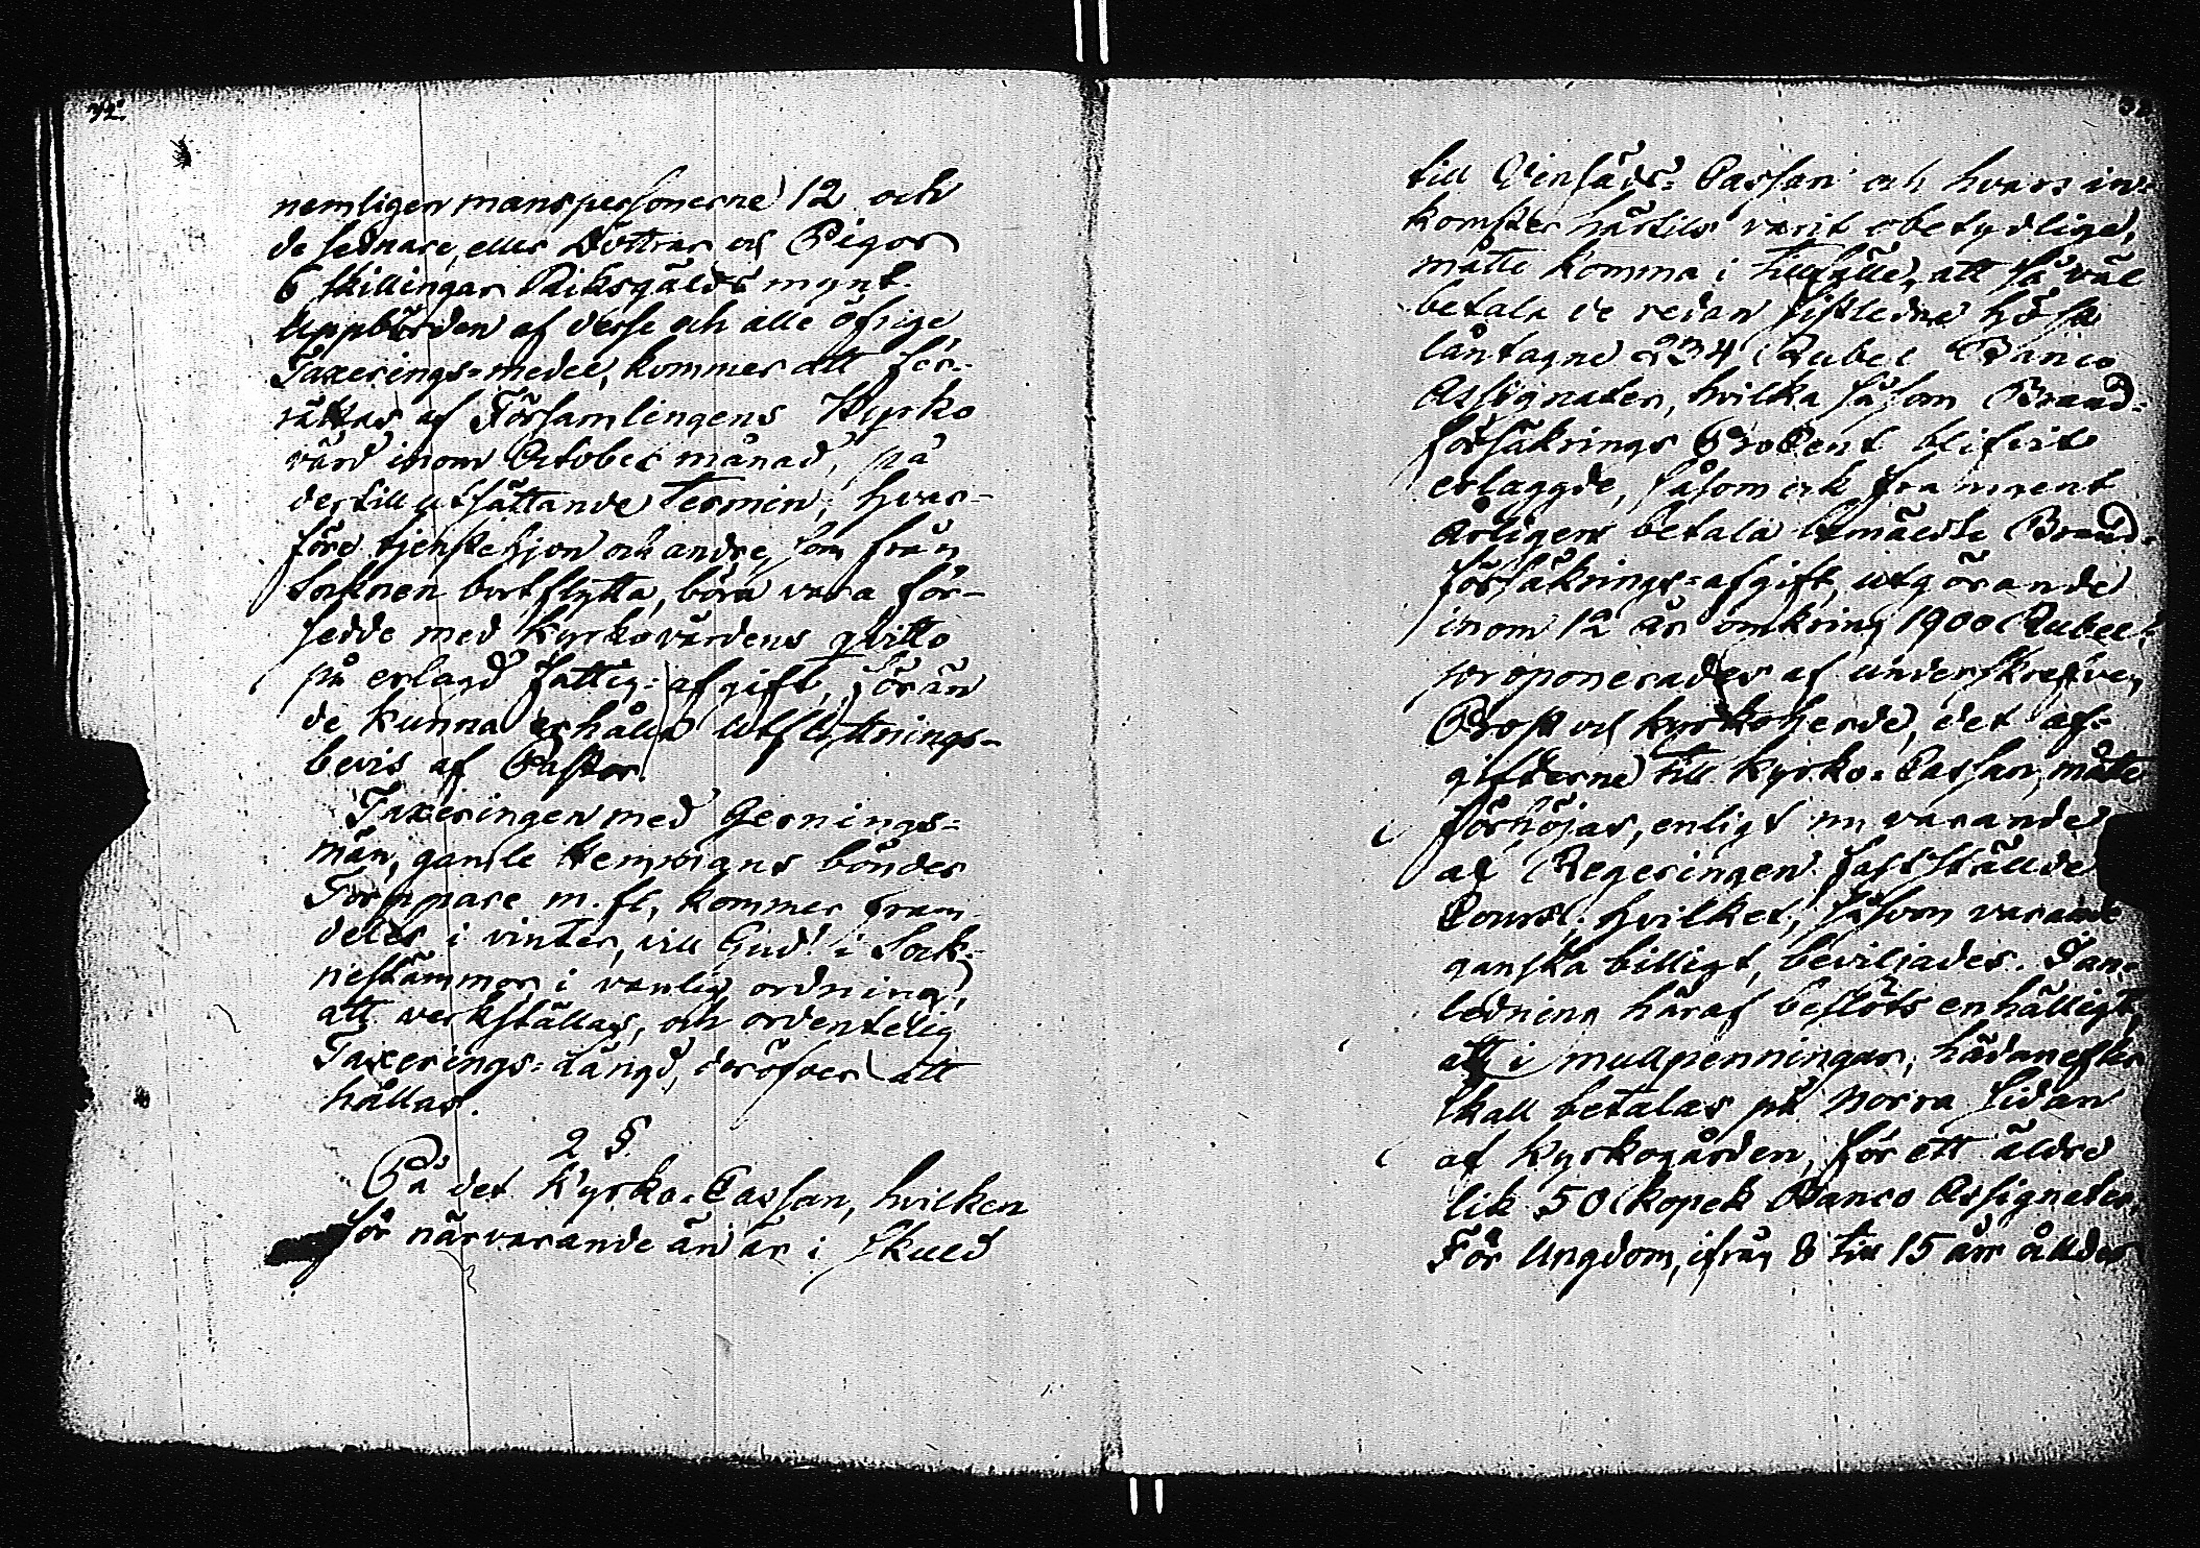 32.
nemligen manspersonerne 12 och
de sednare, eller Döttrar och Pigor
6 skillingar Riksgälds mynt.
Uppbörden af desse och alle öfrige
Taxerings-medel, kommer att för-
rättas af Församlingens Kyrko
värd inom October månad, på
dertill utsättande termin; hvar-
före tjenstehjon och andre, som från
Socknen bortflytta, böra vara för-
sedde med Kyrkovärdens qvitto
på erlagd fattig-afgift, förän
de kunna erhålla utflyttnings-
bevis af Pastor.
Taxeringen med Gernings-
män, gamle Hemmans bönder
Torppare m. fl, kommer fram-
deles i vinter, vill Gud! i Sock-
nestämmor i vanlig ordning,
att verkställas, och ordentelig
Taxerings-längd, deröfver att
hållas.
2 §.
På det Kyrko-Cassan, hvilken
för närvarande än är i skuld
till Cassan och hvars in-
komster härtills varit obetydlige,
måtte komma i tillfälle, att så väl
betala de redan sistledne höst
låntagne 234 Rubel Banco
Assignater, hvilka såsom Brand-
försäkrings Procent blifvit
erlaggde, såsom ock framgent
årligen betala bemälte Brand-
försäkrings-afgift, utgörande
inom 12 år omkring 1900 Rubel;
proponerades af underskrefven
Prost och Kyrkoherde, det af-
gifterne till Kyrko-Cassan, måtte
förhöjas, enligt nu varande
af Regeringen fastställde
Cours; hvilket, såsom varande
ganska billigt, beviljades. I an-
ledning häraf beslöts enhälligt,
att i mullpenningar, hädanefter
skall betalas på Norra sidan
af Kyrkogården, för ett äldre
lik 50 kopek Banco Assignater.
För Ungdom, ifrån 8 till 15 års ållder